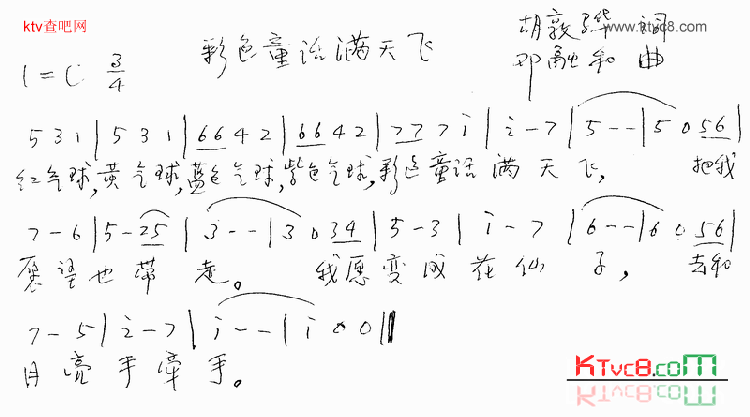 ktv查吧网
www.ktvc8.com
彩色童话满天飞
胡敦骅 词
1=C 3/4
邓融和 曲
5 3 1 | 5 3 1 | 6 6 4 2 | 6 6 4 2 | 7 7 7 i | i - 7 | 5 - - | 5 0 5 6 |
红气球,黄气球,蓝色气球,紫色气球,彩色童话满天飞, 把我
7 - 6 | 5 - 2 5 | 3 - - | 3 0 3 4 | 5 - 3 | i - 7 | 6 - - | 6 0 5 6 |
愿望也带走。 我愿变成花仙子, 去和
7 - 5 | 2 - 7 | i - - | i 0 0 ||
月亮手牵手。
KTvc8.com